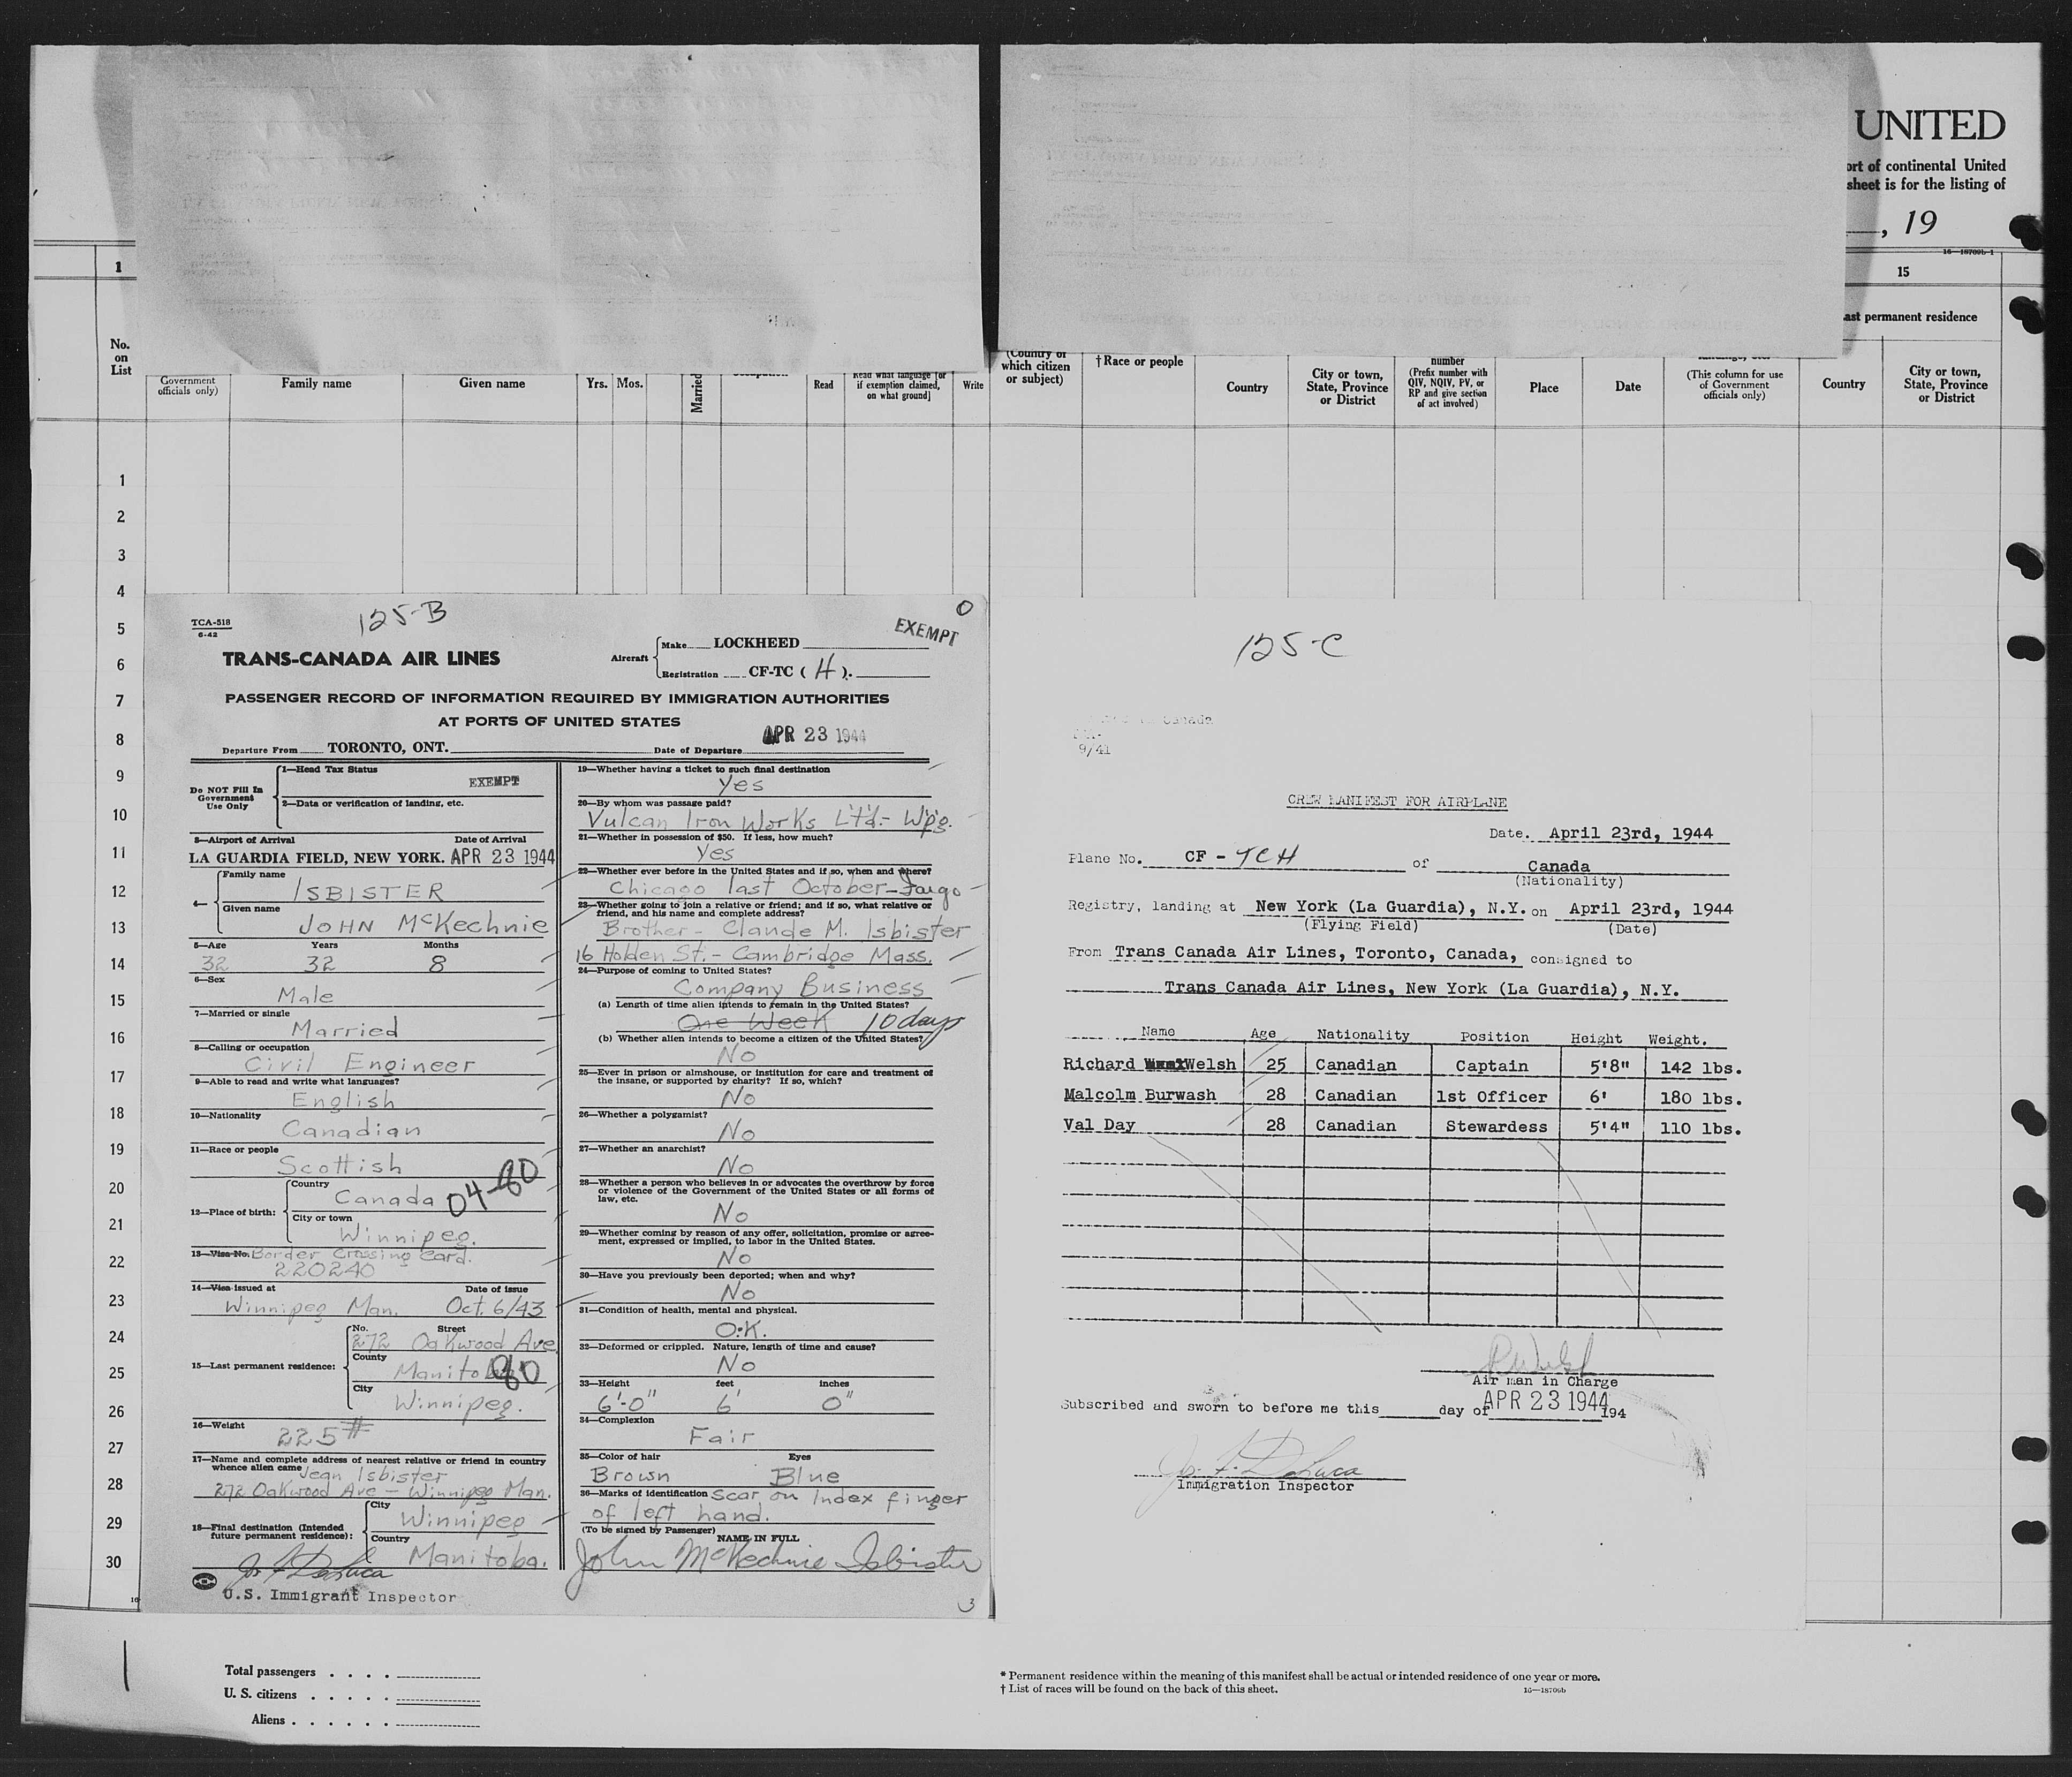 UNITED
ort of continental United
sheet is for the listing of
, 19
16—18709b-1
1
15
ast permanent residence
No.
on
List
Government
officials only)
Family name
Given name
Yrs.
Mos.
Married
Read
Read what language [or
if exemption claimed,
on what ground]
Write
(Country of
which citizen
or subject)
† Race or people
Country
City or town,
State, Province
or District
number
(Prefix number with
QIV, NQIV, PV, or
RP and give section
of act involved)
Place
Date
(This column for use
of Government
officials only)
Country
City or town,
State, Province
or District
1
2
3
4
5
6
7
8
9
10
11
12
13
14
15
16
17
18
19
20
21
22
23
24
25
26
27
28
29
30
TCA-518
6-42
125-B
0
EXEMPT
TRANS-CANADA AIR LINES
Aircraft
Make LOCKHEED
Registration CF-TC ( H ).
PASSENGER RECORD OF INFORMATION REQUIRED BY IMMIGRATION AUTHORITIES
AT PORTS OF UNITED STATES
Departure From TORONTO, ONT. Date of Departure APR 23 1944
Do NOT Fill In
Government
Use Only
1—Head Tax Status
EXEMPT
2—Data or verification of landing, etc.
3—Airport of Arrival Date of Arrival
LA GUARDIA FIELD, NEW YORK. APR 23 1944
4—
Family name
ISBISTER
Given name
JOHN McKechnie
5—Age Years Months
32 32 8
6—Sex
Male
7—Married or single
Married
8—Calling or occupation
Civil Engineer
9—Able to read and write what languages?
English
10—Nationality
Canadian
11—Race or people
Scottish
12—Place of birth:
Country
Canada 04-80
City or town
Winnipeg.
13—Visa No. Border Crossing Card.
220240
14—Visa issued at Date of issue
Winnipeg Man. Oct. 6/43
15—Last permanent residence:
No. Street
272 Oakwood Ave
County
Manitoba 80
City
Winnipeg.
16—Weight
225#
17—Name and complete address of nearest relative or friend in country
whence alien came Jean Isbister
272 Oakwood Ave – Winnipeg Man.
18—Final destination (Intended
future permanent residence):
City
Winnipeg
Country
Manitoba.
Jo. F. DeLuca
U.S. Immigrant Inspector
19—Whether having a ticket to such final destination
Yes
20—By whom was passage paid?
Vulcan Iron Works Ltd.- Wpg.
21—Whether in possession of $50. If less, how much?
Yes
22—Whether ever before in the United States and if so, when and where?
Chicago last October–Fargo
23—Whether going to join a relative or friend; and if so, what relative or
friend, and his name and complete address?
Brother- Claude M. Isbister
16 Holden St.- Cambridge Mass.
24—Purpose of coming to United States?
Company Business
(a) Length of time alien intends to remain in the United States?
One Week 10 days
(b) Whether alien intends to become a citizen of the United States?
No
25—Ever in prison or almshouse, or institution for care and treatment of
the insane, or supported by charity? If so, which?
No
26—Whether a polygamist?
No
27—Whether an anarchist?
No
28—Whether a person who believes in or advocates the overthrow by force
or violence of the Government of the United States or all forms of
law, etc.
No
29—Whether coming by reason of any offer, solicitation, promise or agree-
ment, expressed or implied, to labor in the United States.
No
30—Have you previously been deported; when and why?
No
31—Condition of health, mental and physical.
O.K.
32—Deformed or crippled. Nature, length of time and cause?
No
33—Height feet inches
6'-0" 6' 0"
34—Complexion
Fair
35—Color of hair Eyes
Brown Blue
36—Marks of identification Scar on Index finger
of left hand.
(To be signed by Passenger) NAME IN FULL
John McKechnie Isbister
3
125-C
Canada
9/41
CREW MANIFEST FOR AIRPLANE
Date. April 23rd, 1944
Plane No. CF - TCH of Canada
(Nationality)
Registry, landing at New York (La Guardia), N.Y. on April 23rd, 1944
(Flying Field) (Date)
From Trans Canada Air Lines, Toronto, Canada, consigned to
Trans Canada Air Lines, New York (La Guardia), N.Y.
Name Age Nationality Position Height Weight.
Richard Welsh 25 Canadian Captain 5'8" 142 lbs.
Malcolm Burwash 28 Canadian 1st Officer 6' 180 lbs.
Val Day 28 Canadian Stewardess 5'4" 110 lbs.
RWelsh
Air man in Charge
Subscribed and sworn to before me this day of APR 23 1944 194
Jo. F. DeLuca
Immigration Inspector
Total passengers
U. S. citizens
Aliens
* Permanent residence within the meaning of this manifest shall be actual or intended residence of one year or more.
† List of races will be found on the back of this sheet. 16—18709b